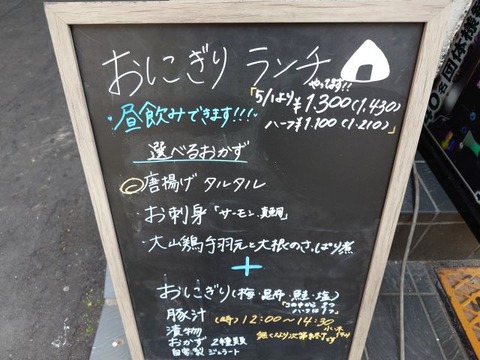 おにぎり ランチ
やってます!!
「5/1より ¥1,300(1,430)
ハーフ¥1,100(1,210)」
昼飲みできます!!!
選べるおかず
唐揚げ タルタル
・お刺身「サーモン・真鯛」
・大山鶏手羽元と大根のさっぱり煮
+
おにぎり(梅・昆布・鮭・塩)
「この中から2つ
ハーフは1つ」
豚汁
(時)12:00〜14:30
漬物
無くなり次第終了です
おかず 2種類
自家製 ジェラート
団体様